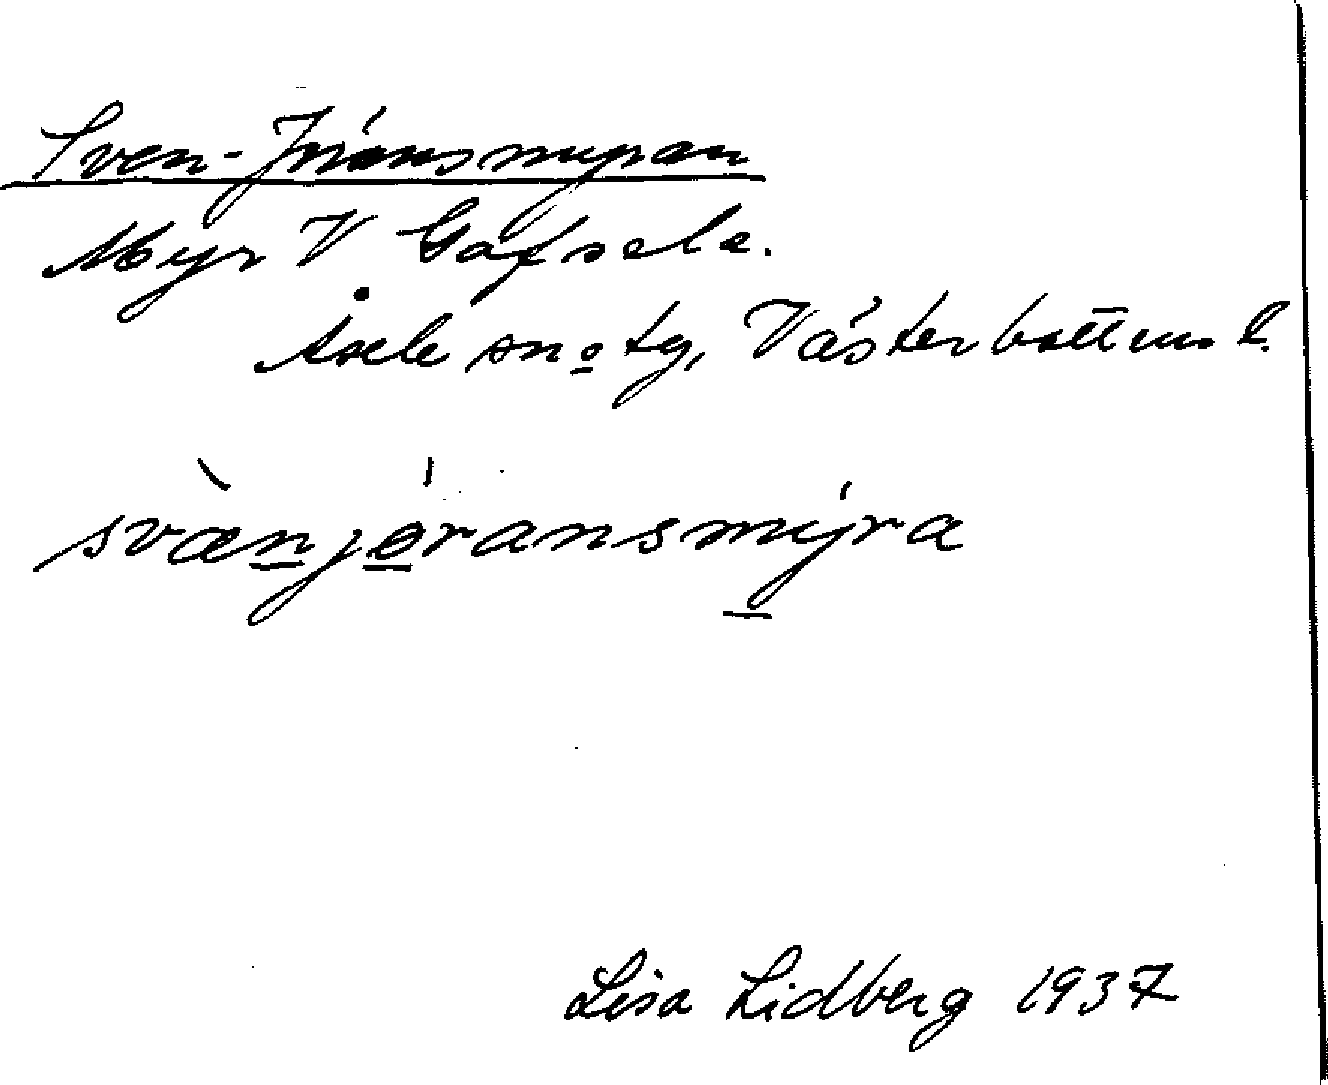 Sven-Jöransmyran
Myr V Gafsele.
Åsele sn o tg, Västerbottens l.
svænjöransmyra
Lisa Lidberg 1937